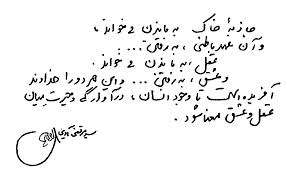 جاذبهٔ خاک به ماندن می‌خواند،
و آن عهد باطنی، به رفتن ...
عقل به ماندن می‌خواند
و عشق، به رفتن ... و این هر دو را خدا داد
آفریده است تا وجود انسان، در آوارگی و حیرت میان
عقل و عشق معنا شود.
سید مرتضی آوینی